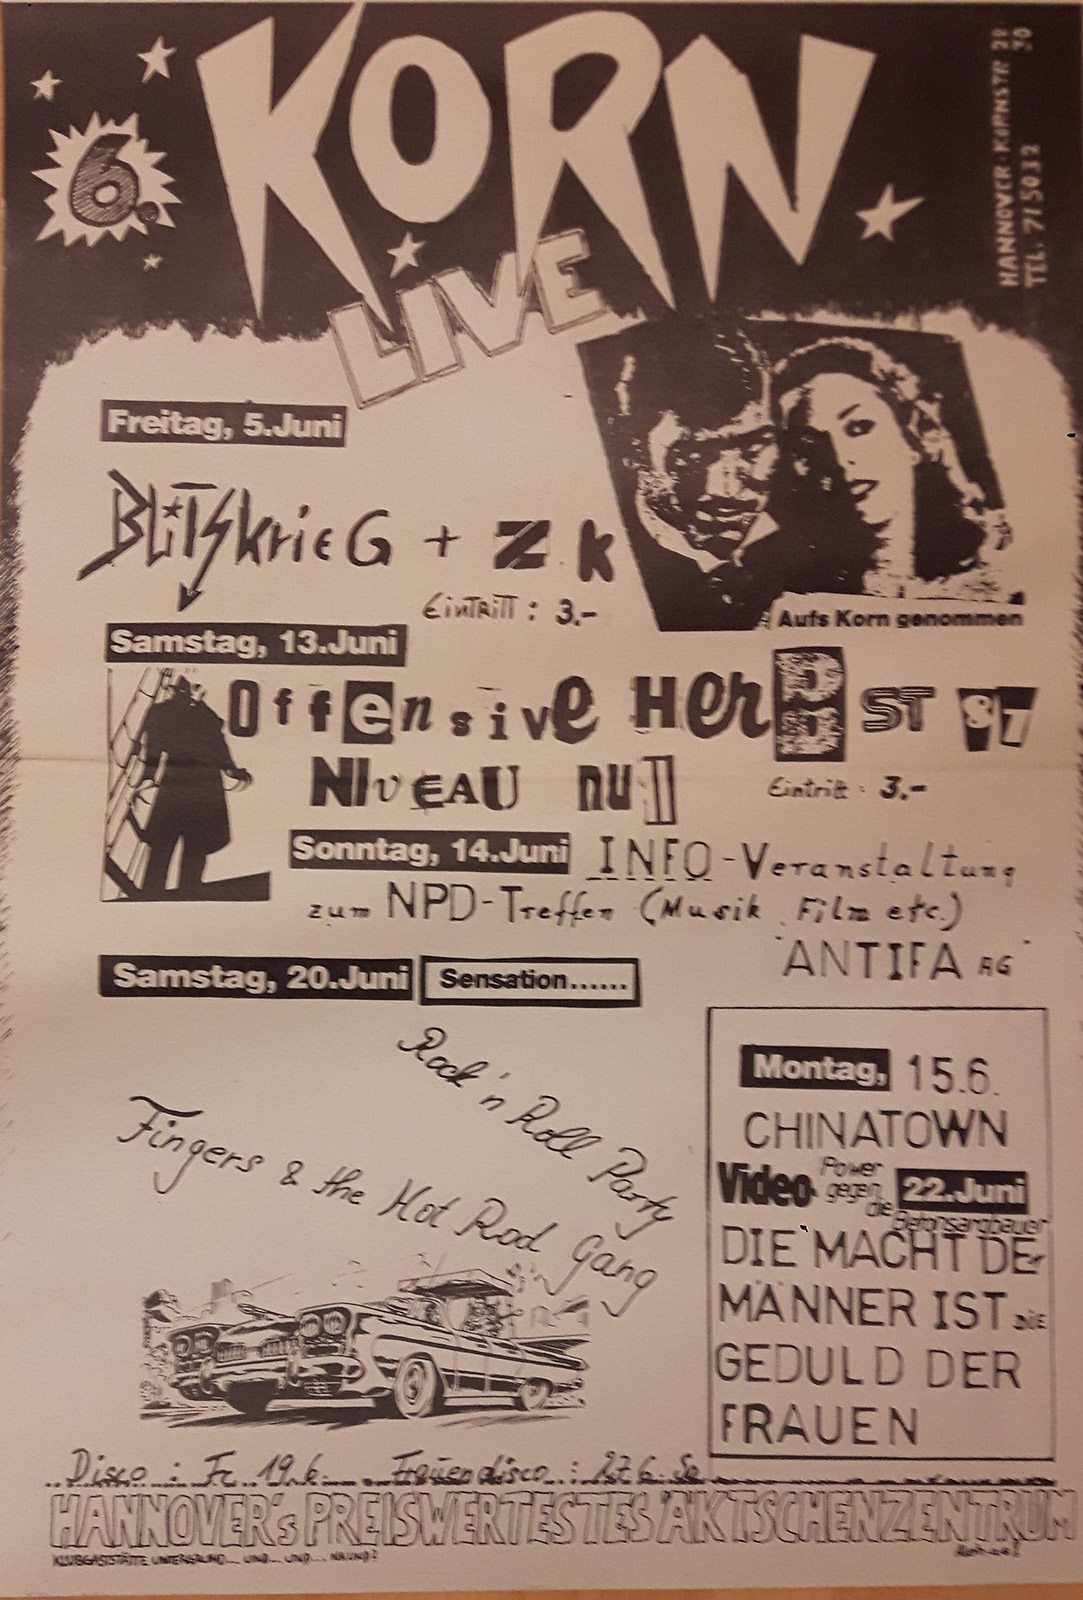 6.
KORN
LIVE
HANNOVER · KORNSTR 28-30
TEL. 715032
Freitag, 5.Juni
BlitskrieG + Z.K
Eintritt : 3.-
Aufs Korn genommen
Samstag, 13.Juni
Offensive HerBST 87
NiVEAU null
Eintritt : 3.-
Sonntag, 14.Juni INFO-Veranstaltung
zum NPD-Treffen (Musik, Film etc.)
ANTIFA AG
Samstag, 20.Juni Sensation......
Rock 'n Roll Party
Fingers & the Hot Rod Gang
Montag, 15.6.
CHINATOWN
Video Power gegen die Betonsargbauer 22.Juni
DIE MACHT DEr
MÄNNER IST DIE
GEDULD DER
FRAUEN
Disco : Fr. 19.6. Frauendisco : 27.6. Sa
HANNOVER's PREISWERTESTES 'ÄKTSCHENZENTRUM
KLUBGASTSTÄTTE UNTERGRUND... UND... UND... NA UND?